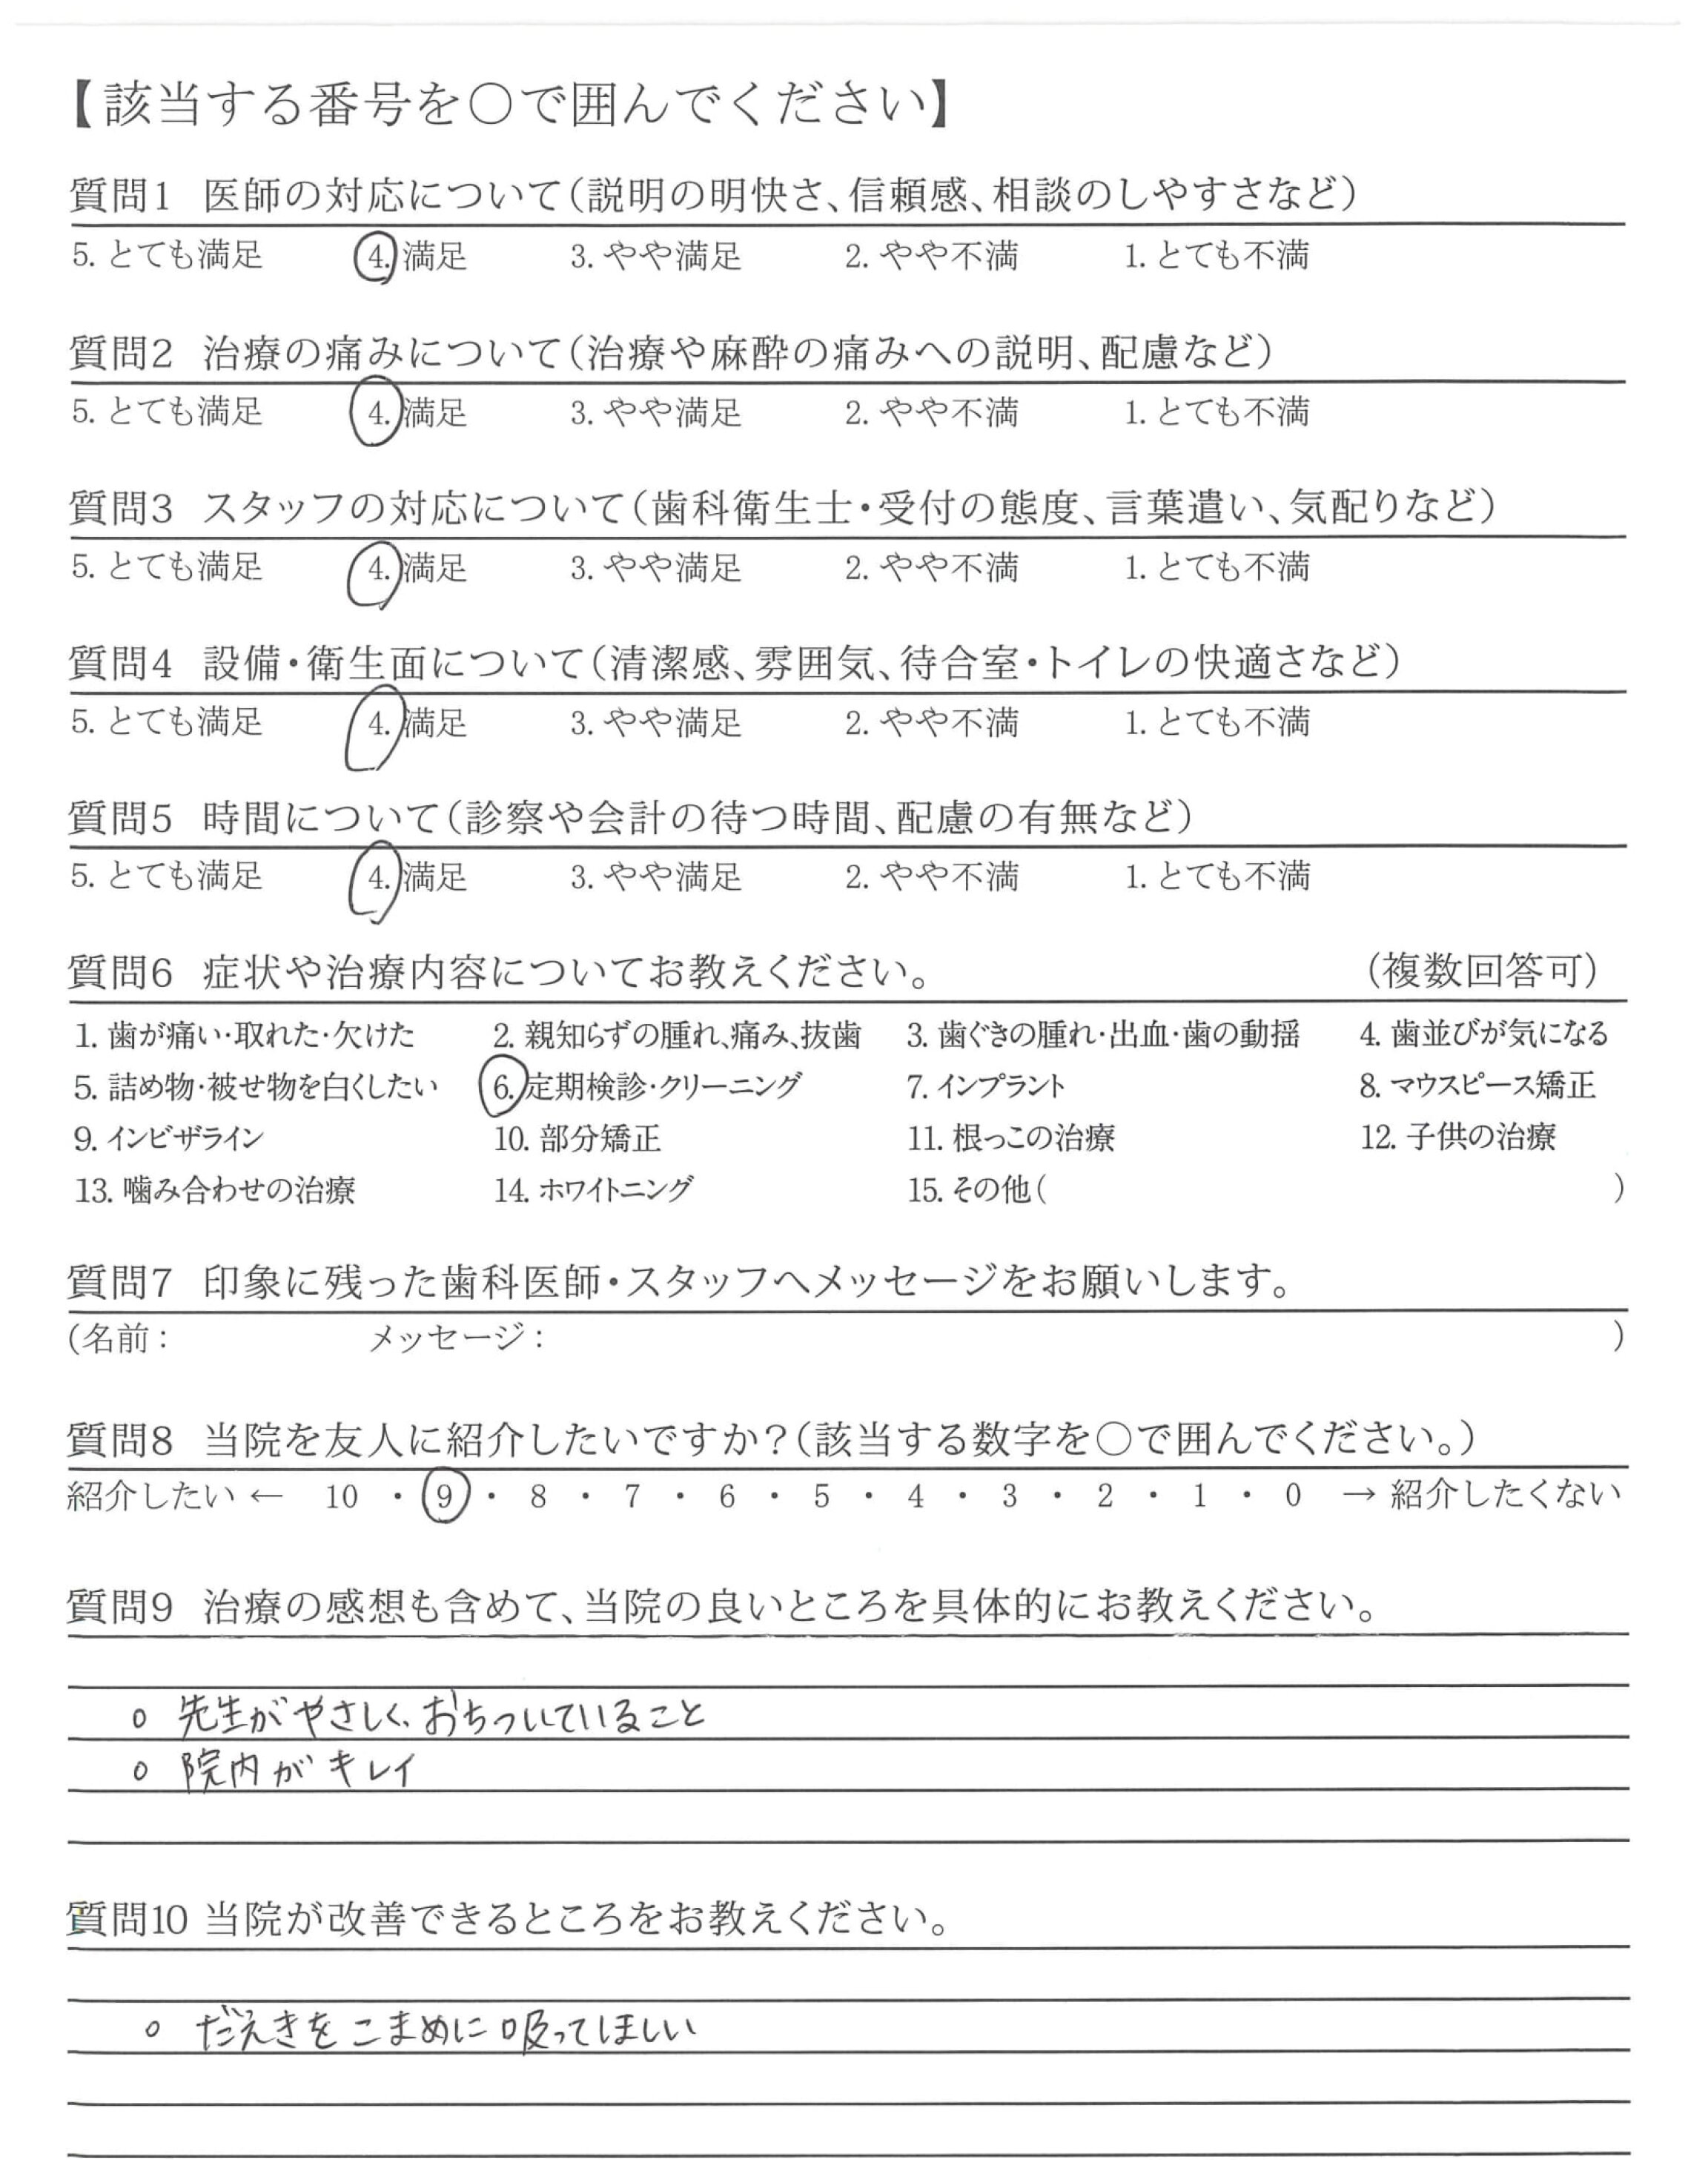 【該当する番号を○で囲んでください】
質問1 医師の対応について(説明の明快さ、信頼感、相談のしやすさなど)
5. とても満足 4. 満足 3. やや満足 2. やや不満 1. とても不満
質問2 治療の痛みについて(治療や麻酔の痛みへの説明、配慮など)
5. とても満足 4. 満足 3. やや満足 2. やや不満 1. とても不満
質問3 スタッフの対応について(歯科衛生士・受付の態度、言葉遣い、気配りなど)
5. とても満足 4. 満足 3. やや満足 2. やや不満 1. とても不満
質問4 設備・衛生面について(清潔感、雰囲気、待合室・トイレの快適さなど)
5. とても満足 4. 満足 3. やや満足 2. やや不満 1. とても不満
質問5 時間について(診察や会計の待つ時間、配慮の有無など)
5. とても満足 4. 満足 3. やや満足 2. やや不満 1. とても不満
質問6 症状や治療内容についてお教えください。 (複数回答可)
1. 歯が痛い・取れた・欠けた 2. 親知らずの腫れ、痛み、抜歯 3. 歯ぐきの腫れ・出血・歯の動揺 4. 歯並びが気になる
5. 詰め物・被せ物を白くしたい 6. 定期検診・クリーニング 7. インプラント 8. マウスピース矯正
9. インビザライン 10. 部分矯正 11. 根っこの治療 12. 子供の治療
13. 噛み合わせの治療 14. ホワイトニング 15. その他( )
質問7 印象に残った歯科医師・スタッフへメッセージをお願いします。
(名前: メッセージ: )
質問8 当院を友人に紹介したいですか?(該当する数字を○で囲んでください。)
紹介したい ← 10 ・ 9 ・ 8 ・ 7 ・ 6 ・ 5 ・ 4 ・ 3 ・ 2 ・ 1 ・ 0 → 紹介したくない
質問9 治療の感想も含めて、当院の良いところを具体的にお教えください。
○ 先生がやさしく、おちついていること
○ 院内がキレイ
質問10 当院が改善できるところをお教えください。
○ だえきをこまめに吸ってほしい